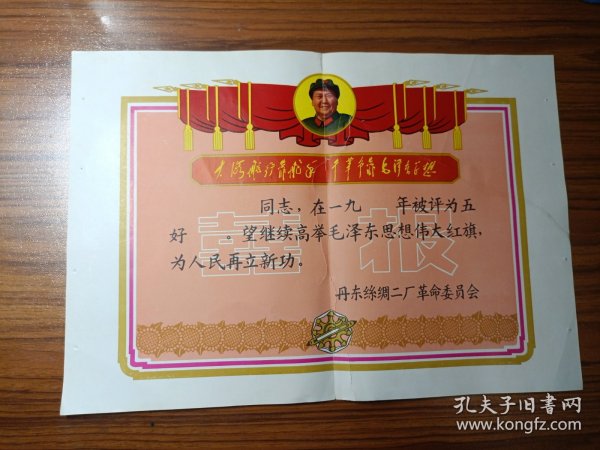 大海航行靠舵手 干革命靠毛泽东思想
同志，在一九　　年被评为五
好　　。望继续高举毛泽东思想伟大红旗，
为人民再立新功。
喜报
丹东丝绸二厂革命委员会
孔夫子旧书网
www.kongfz.com